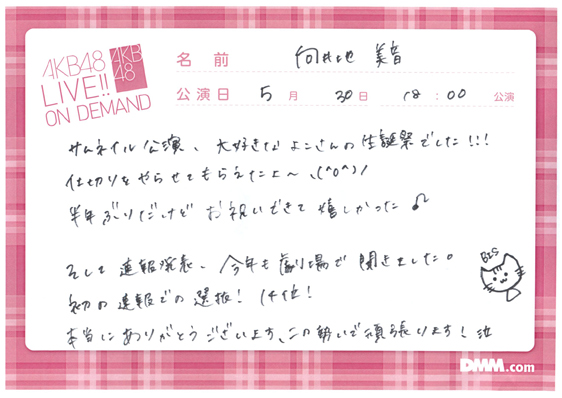 AKB48
LIVE!!
ON DEMAND
AKB
48
名前 向井地 美音
公演日 5月 30日 18:00 公演
サムネイル公演、大好きなよこさんの生誕祭でした!!!
仕切りをやらせてもらえたよ〜ヽ(^o^)ノ
半年ぶりだけど お祝いできて 嬉しかった♪
そして 速報発表、今年も劇場で 聞きました。
初の速報での選抜! 14位!
本当にありがとうございます、この勢いで頑張ります!
DMM.com